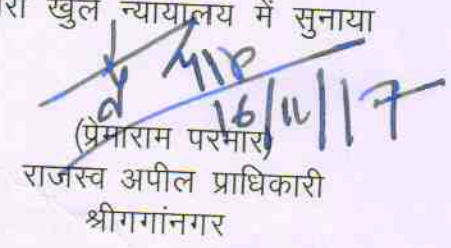 खुले न्यायालय में सुनाया
16/11/17
(प्रेमाराम परमार)
राजस्व अपील प्राधिकारी
श्रीगगांनगर